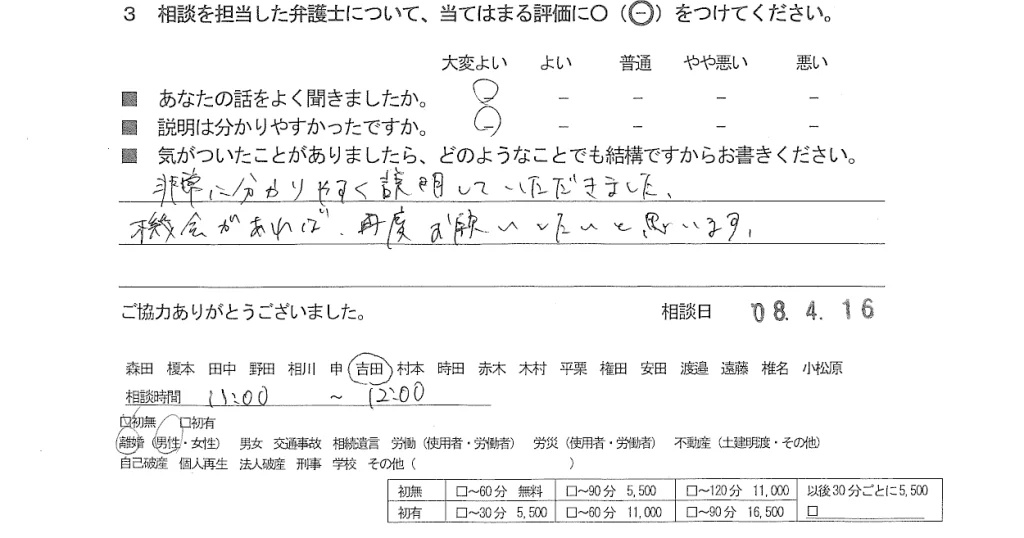 3 相談を担当した弁護士について、当てはまる評価に〇（㊀）をつけてください。
大変よい よい 普通 やや悪い 悪い
■ あなたの話をよく聞きましたか。 － － － － －
■ 説明は分かりやすかったですか。 － － － － －
■ 気がついたことがありましたら、どのようなことでも結構ですからお書きください。
非常に分かりやすく説明していただきました。
機会があれば、再度お願いしたいと思います。
ご協力ありがとうございました。 相談日 '08.4.16
森田 榎本 田中 野田 相川 申 吉田 村本 時田 赤木 木村 平栗 権田 安田 渡邉 遠藤 椎名 小松原
相談時間 11:00 ～ 12:00
☑初無 □初有
離婚（男性・女性） 男女 交通事故 相続遺言 労働（使用者・労働者） 労災（使用者・労働者） 不動産（土建明渡・その他）
自己破産 個人再生 法人破産 刑事 学校 その他（ ）
初無 □～60分 無料 □～90分 5,500 □～120分 11,000 以後30分ごとに5,500
初有 □～30分 5,500 □～60分 11,000 □～90分 16,500 □